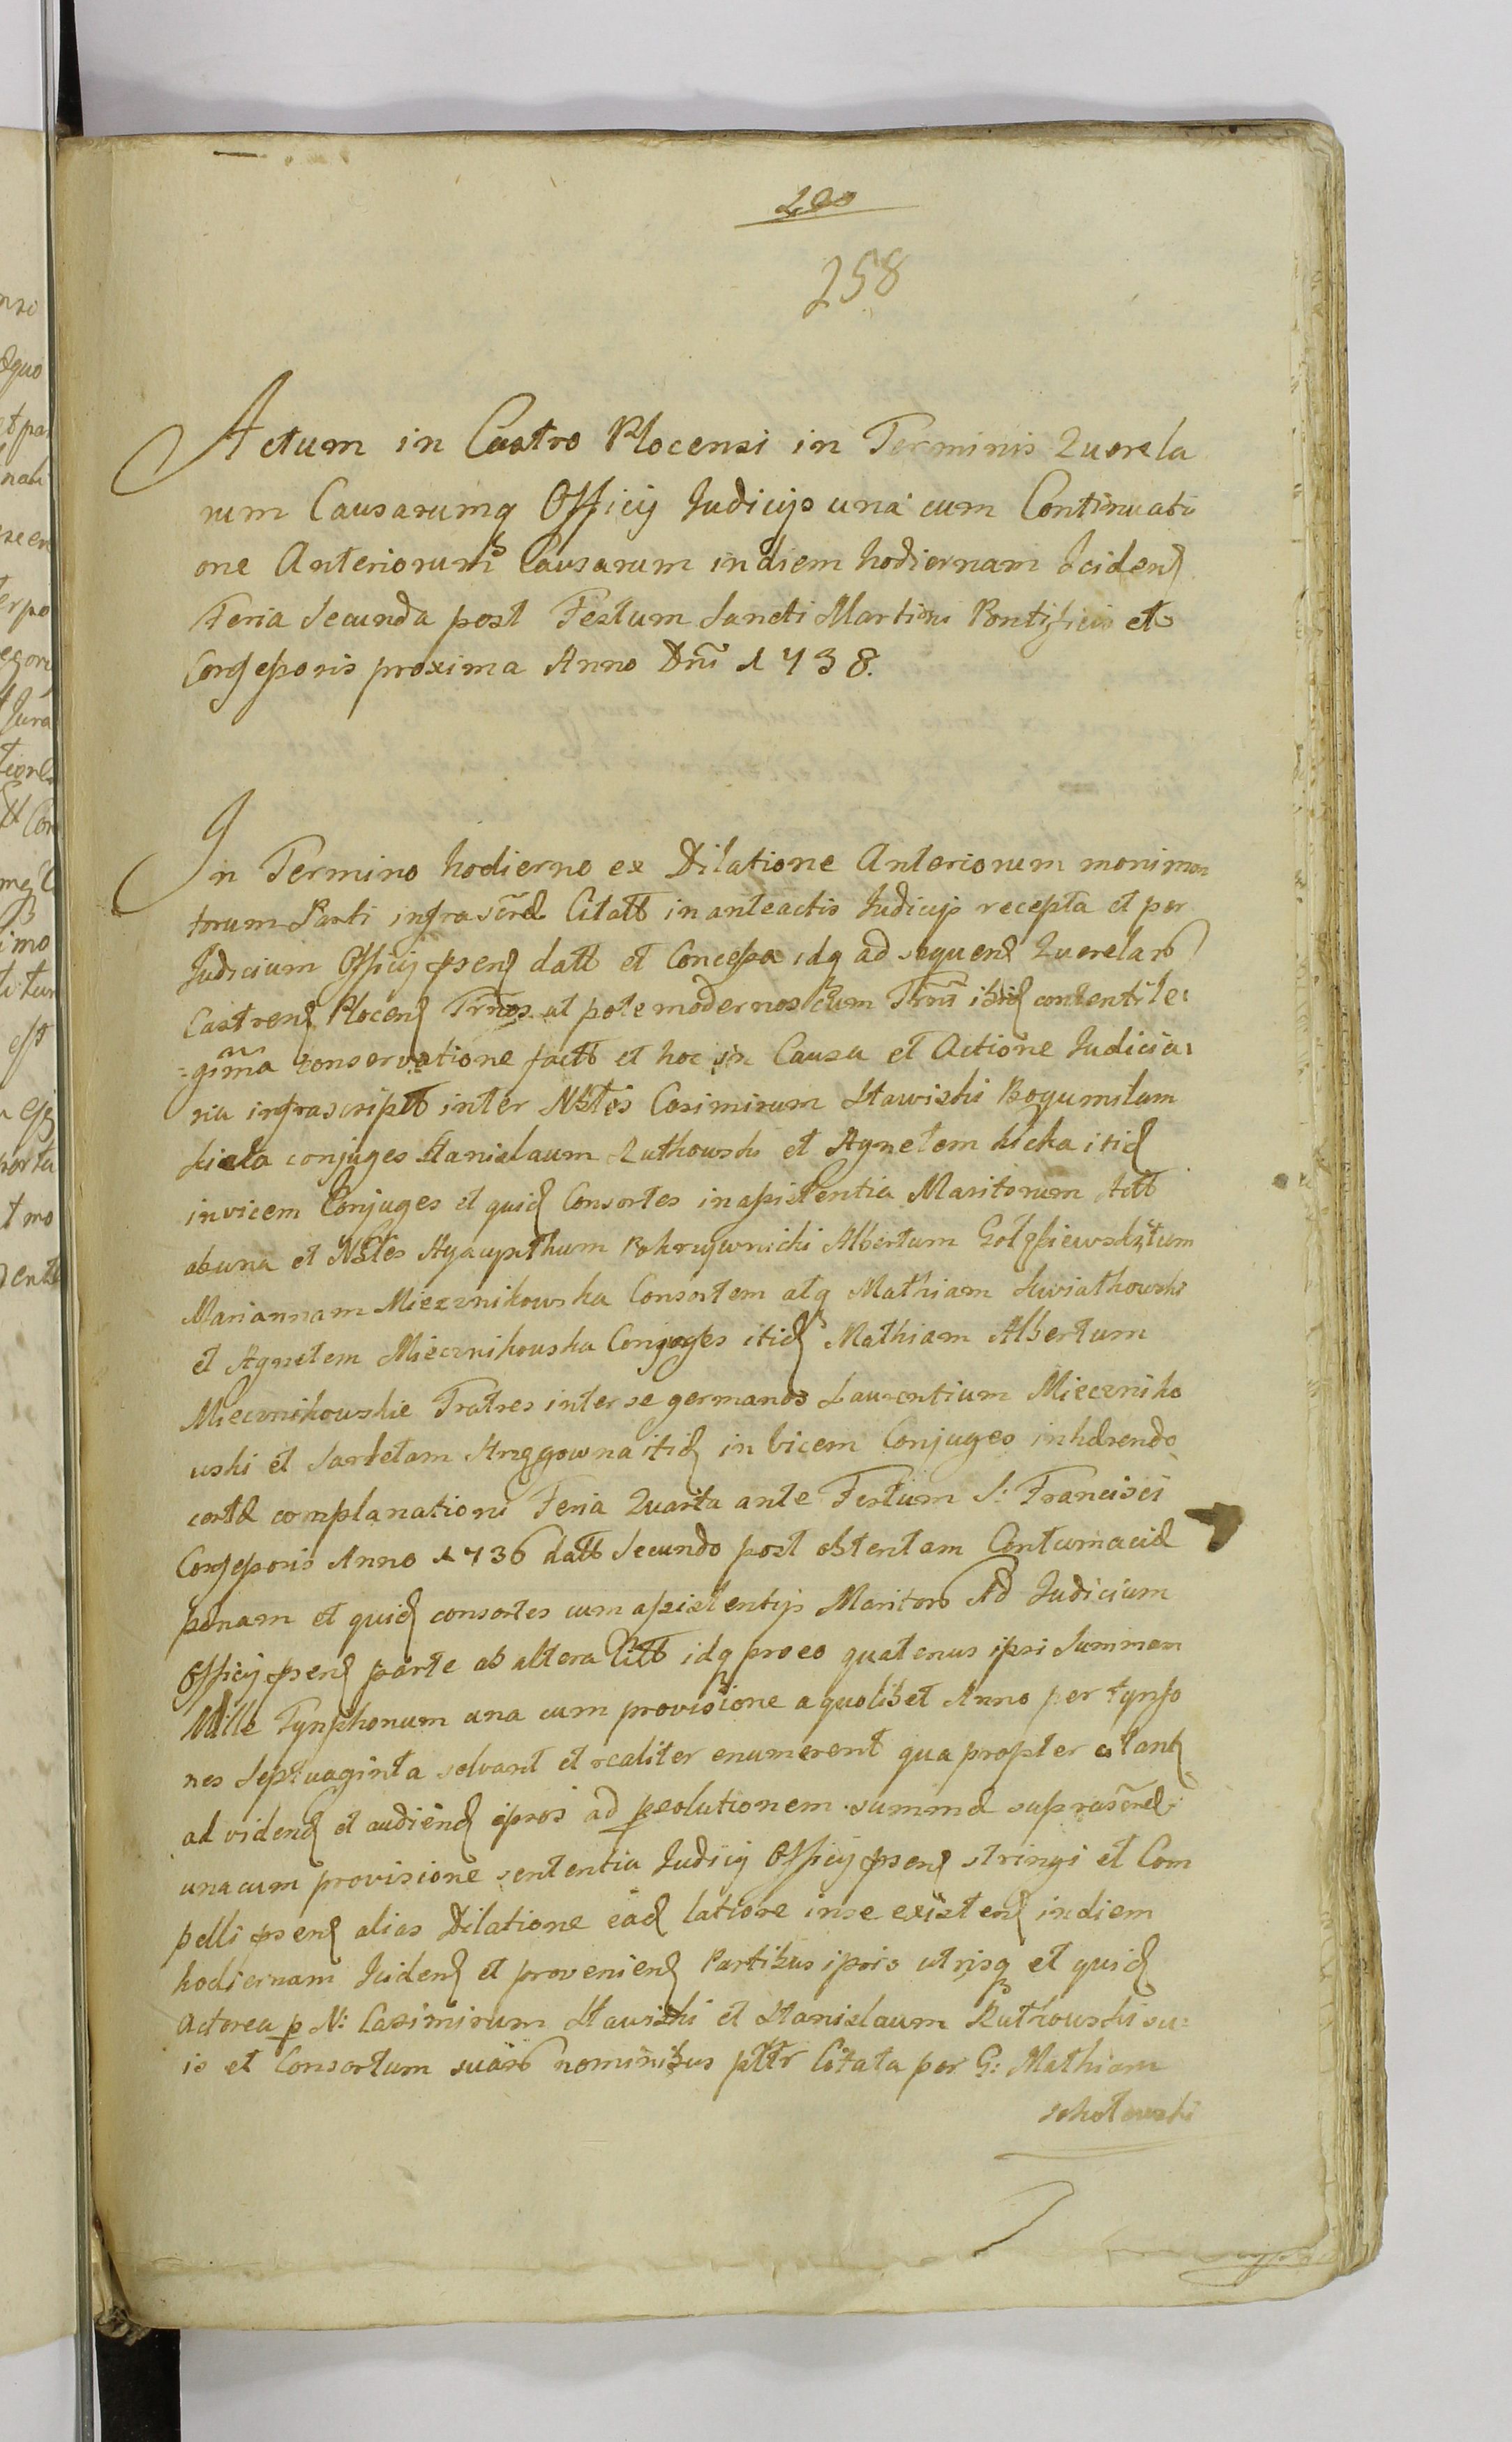 200
258
Actum in Castro Plocensi in Terminis Querela
rum Causarumq Officij Judicijs una cum Continuati
one Anteriorum Causarum in diem hodiernam Jciden
Feria Secunda post Festum Sancti Martini Pontificis et
Confessoris proxima Anno Dni 1738.
In Termino hodierno ex Dilatione Anteriorum monimen
torum Parti infrascrae Citatt in anteactis Judicijs recepta et per
Judicium Officij psen datt et Concessa idq ad sequen Querelar
Castren Plocen Trnos ut pote modernos cum Trni ibid contenti le
gima conservatione factt et hoc in Causa et Actione Judicia
ria infrascriptt inter Nbles Casimirum Stawiski Bogumilam
conjuges Stanislaum Rutkowski et Agnetem Kicka itid
invicem Conjuges et quid Consortes in assistentia Maritorum Actt
ab una et Nbles Hyacynthum Pokrzywnicki Albertum
Mariannam Miecznikowska Consortem atq Mathiam Kwiatkowski
et Agnetem Miecznikowska Conjuges itid Mathiam Albertum
Miecznikowskie Fratres inter se germanos Laurentium Mieczniko
wski et itid in vicem Conjuges inhaerendo
certae complanationi Feria Quarta ante Festum S: Francisci
Confessoris Anno 1736 datt Secundo post obtentam Contumaciae
paenam et quid consortes cum assistentijs Maritor Ad Judicium
Officij psen parte ab altera Citt idq pro eo quatenus ipsi Summam
Mille Tynphonum una cum provisione a quolibet Anno per tynfo
nes Septuaginta solvant et realiter enumerent qua propter citant
ad viden et audien ipsos ad psolutionem summae suprascrae
una cum provisione sententia Judicij Officij psen stringi et Com
pelli psen alias Dilatione ead latiore in se existen in diem
hodiernam Jciden et provenien Partibus ipsis utrisq et quid
Actorea p N: Casimirum Stawiski et Stanislaum Rutkowski su
is et Consortum suar nominibus pttr Citata per G: Mathiam
Sokolowski